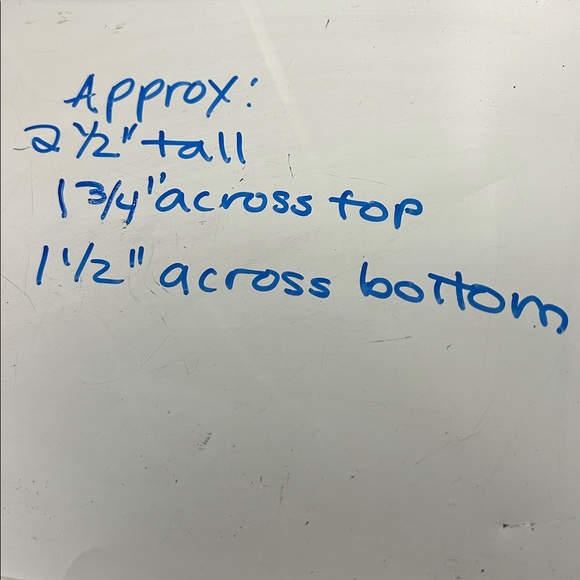 Approx:
2 1/2" tall
1 3/4" across top
1 1/2" across bottom